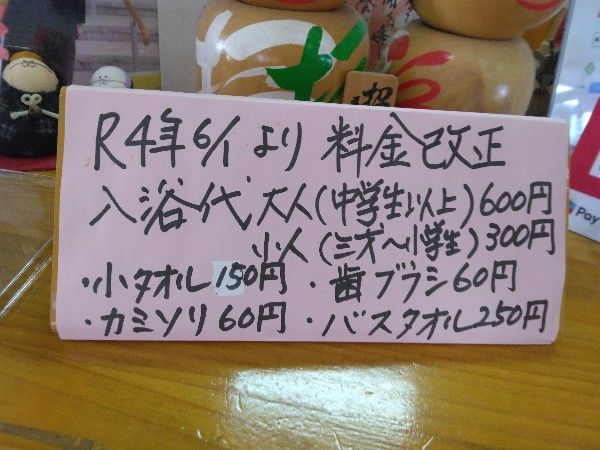 R4年6/1より 料金改正
入浴代 大人(中学生以上)600円
小人(三才~小学生)300円
・小タオル150円 ・歯ブラシ60円
・カミソリ60円 ・バスタオル250円
Pay